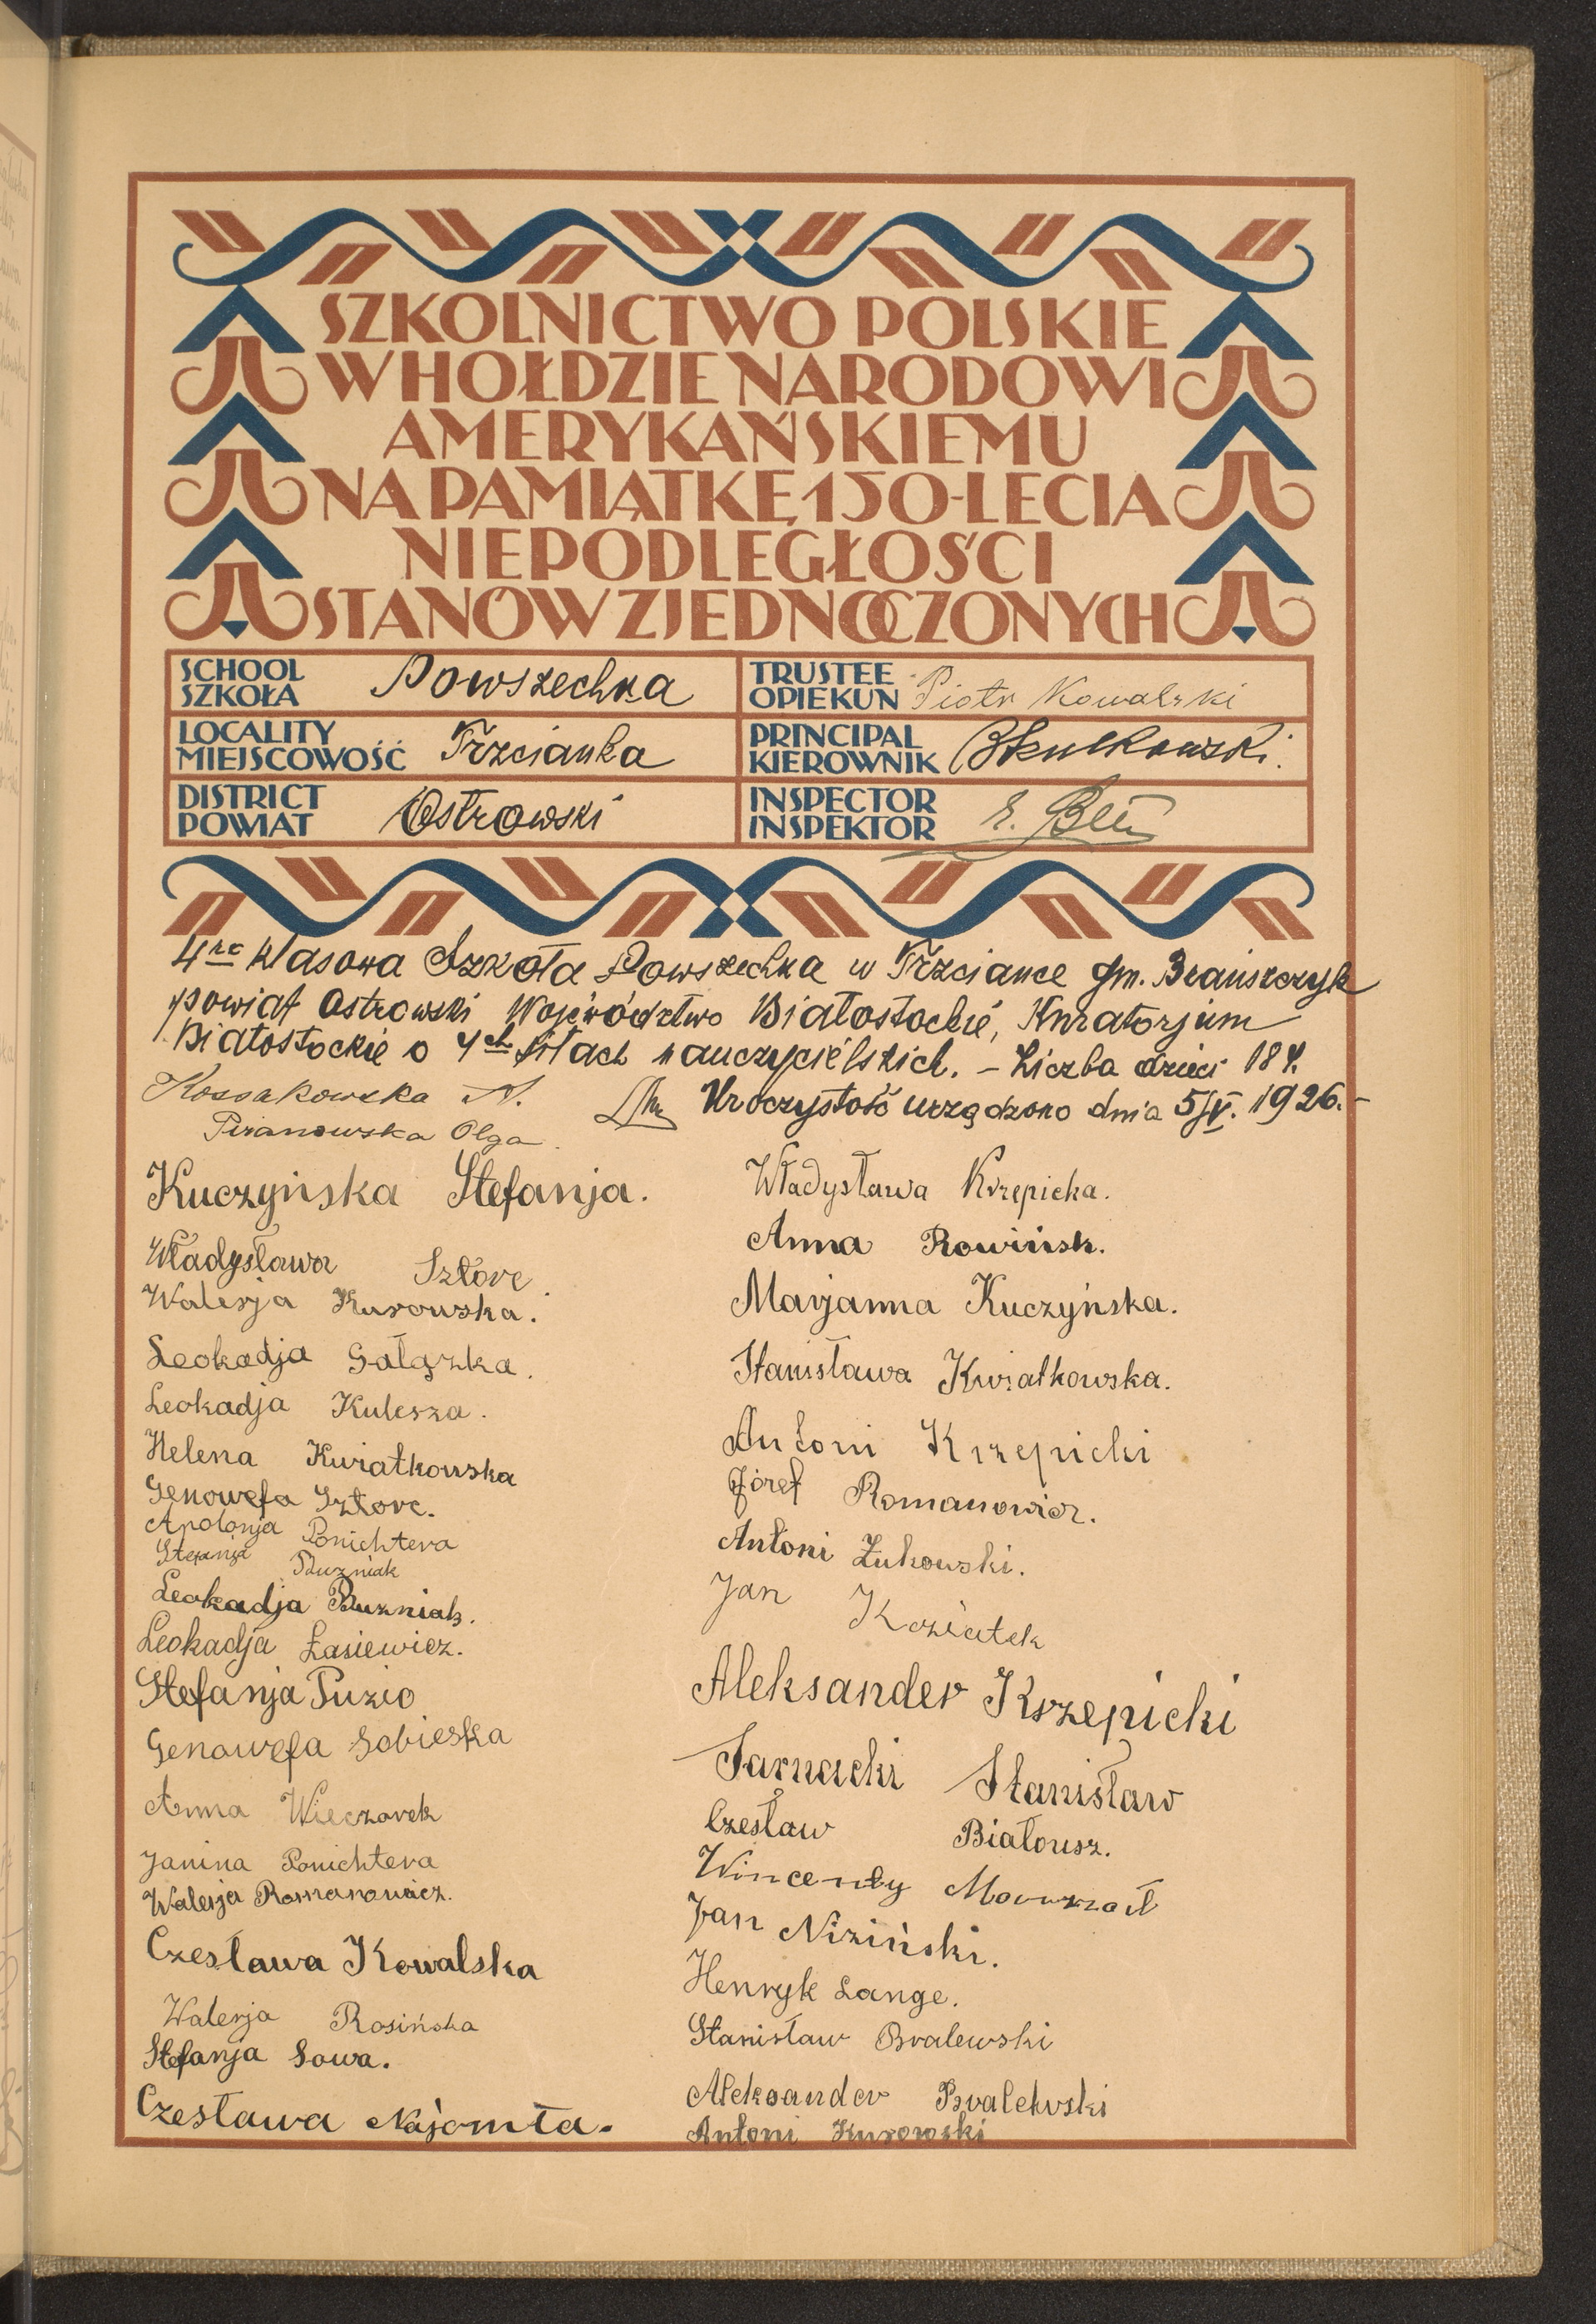 SZKOLNICTWO POLSKIE
W HOŁDZIE NARODOWI
AMERYKAŃSKIEMU
NA PAMIĄTKĘ 150-LECIA
NIEPODLEGŁOŚCI
STANÓW ZJEDNOCZONYCH
SCHOOL
SZKOŁA Powszechna
TRUSTEE
OPIEKUN Piotr Kowalski
LOCALITY
MIEJSCOWOŚĆ Trzcianka
PRINCIPAL
KIEROWNIK
DISTRICT
POWIAT Ostrowski
INSPECTOR
INSPEKTOR
4ro klasowa Szkoła Powszechna w Trzciance gm. Brańszczyk
powiat Ostrowski Województwo Białostockie, Kuratorjum
Białostockie o 4ch siłach nauczycielskich. – Liczba dzieci 184.
Uroczystość urządzono dnia 5/V. 1926. –
Kossakowska N.
Piranowska Olga
Kuczyńska Stefanja.
Władysława Sztorc
Walerja Kurowska.
Leokadja Gałązka.
Leokadja Kulesza.
Helena Kwiatkowska
Genowefa Sztorc.
Apolonja Ponichtera
Stefanja Puzniak
Leokadja Puzniak.
Leokadja Łasiewicz.
Stefanja Puzio
Genowefa Sobieska
Anna Wieczorek
Janina Ponichtera
Walerja Romanowicz.
Czesława Kowalska
Walerja Rosińska
Stefanja Sowa.
Czesława Najomła.
Władysława Krzepicka.
Anna Rowińsk.
Marjanna Kuczyńska.
Stanisława Kwiatkowska.
Antoni Krzepicki
Józef Romanowicz.
Antoni Żukowski.
Jan Koziatek
Aleksander Krzepicki
Tarnacki Stanisław
Czesław Białousz.
Wincenty
Jan Niziński.
Henryk Lange.
Stanisław Bralewski
Aleksander Bralewski
Antoni Kurowski